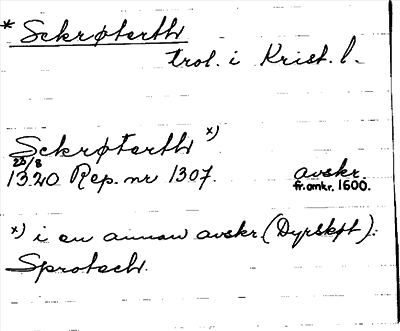 * Sckrøterth
trol. i Krist. l.
Sckrøterth x)
23/8
1320 Rep. nr 1307. avskr.
fr. omkr. 1600.
x) i en annan avskr. (Dyrskøt):
Sprotsch.